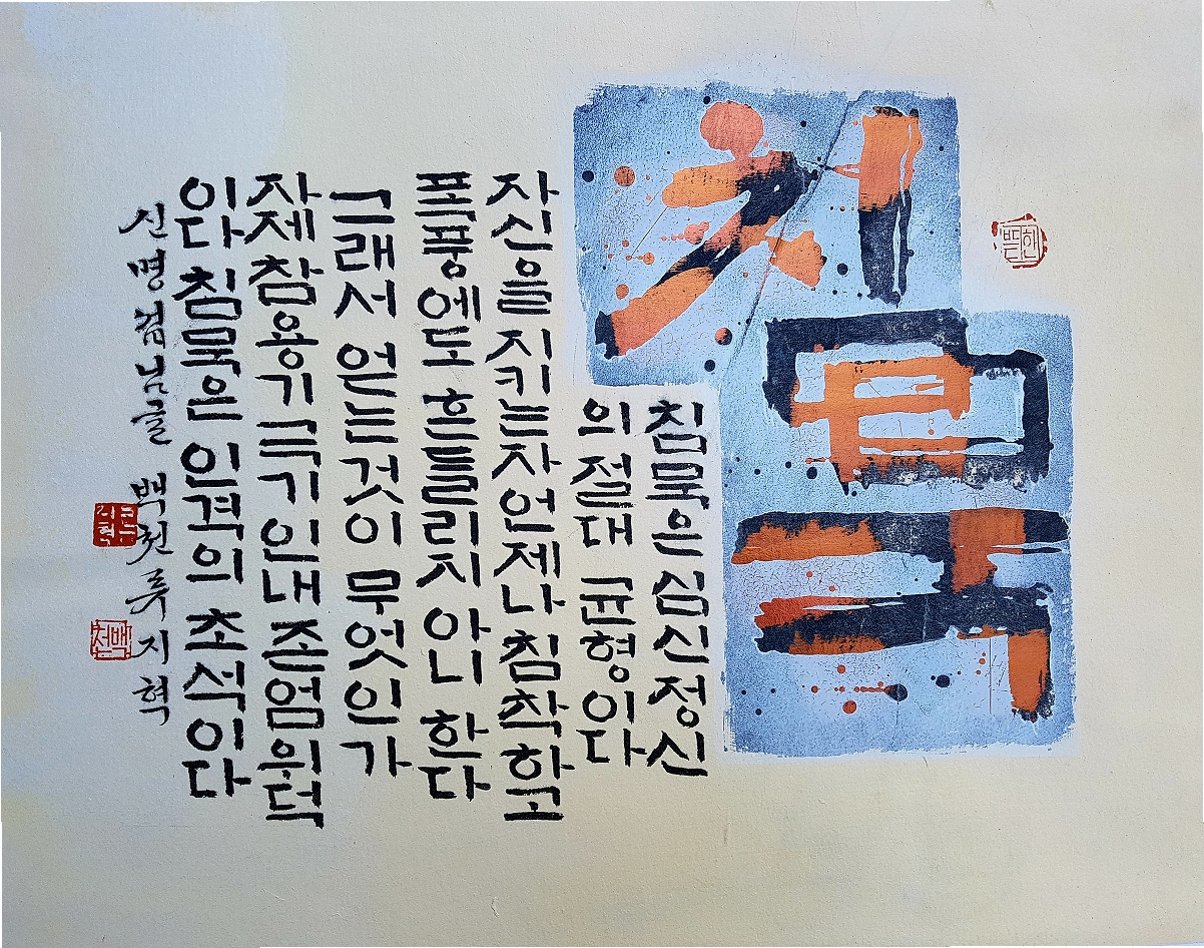 침묵
침묵은 심신정신
의 절대 균형이다
자신을 지키는자 언제나 침착하고
폭풍에도 흔들리지 아니 한다
그래서 얻는것이 무엇인가
자제 참용기 극기 인내 존엄 위덕
이다 침묵은 인격의 초석이다
신명겸님글 백천 류지혁
백천